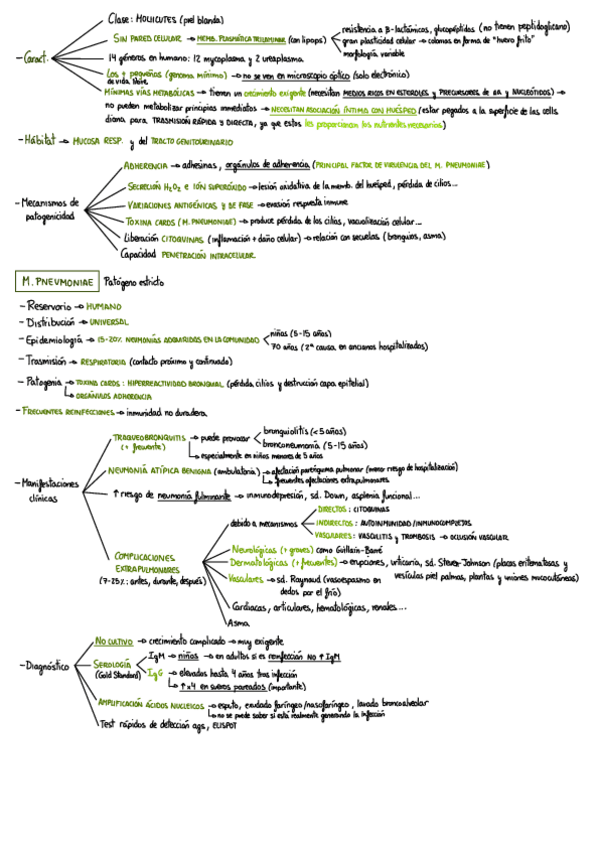 Clase: MOLLICUTES (piel blanda)
- Caract.
SIN PARED CELULAR → MEMB. PLASMÁTICA TRILAMINAR (con lipops)
resistencia a β-lactámicos, glucopéptidos (no tienen peptidoglicano)
gran plasticidad celular → colonias en forma de "huevo frito"
morfología variable
14 géneros en humano: 12 mycoplasma y 2 ureaplasma
Los + pequeños (genoma mínimo) → no se ven en microscopio óptico (solo electrónico)
de vida libre
MÍNIMAS VÍAS METABÓLICAS → tienen un crecimiento exigente (necesitan MEDIOS RICOS EN ESTEROLES Y PRECURSORES DE AA Y NUCLEÓTIDOS) →
no pueden metabolizar principios inmediatos → NECESITAN ASOCIACIÓN ÍNTIMA CON HUÉSPED (estar pegados a la superficie de las cells
diana para TRASMISIÓN RÁPIDA Y DIRECTA, ya que estos les proporcionan los nutrientes necesarios)
- Hábitat → MUCOSA RESP. y del TRACTO GENITOURINARIO
- Mecanismos de patogenicidad
ADHERENCIA → adhesinas, orgánulos de adherencia (PRINCIPAL FACTOR DE VIRULENCIA DEL M. PNEUMONIAE)
SECRECIÓN H2O2 e IÓN SUPERÓXIDO → lesión oxidativa de la memb. del huésped, pérdida de cilios...
VARIACIONES ANTIGÉNICAS Y DE FASE → evasión respuesta inmune
TOXINA CARDS (M. PNEUMONIAE) → produce pérdida de los cilios, vacuolización celular...
Liberación CITOQUINAS (inflamación + daño celular) → relación con secuelas (bronquios, asma)
Capacidad PENETRACIÓN INTRACELULAR
M. PNEUMONIAE Patógeno estricto
- Reservorio → HUMANO
- Distribución → UNIVERSAL
- Epidemiología → 15-20% NEUMONÍAS ADQUIRIDAS EN LA COMUNIDAD
niños (5-15 años)
70 años (2ª causa en ancianos hospitalizados)
- Trasmisión → RESPIRATORIA (contacto próximo y continuado)
- Patogenia → TOXINA CARDS: HIPERREACTIVIDAD BRONQUIAL (pérdida cilios y destrucción capa epitelial)
↳ ORGÁNULOS ADHERENCIA
- FRECUENTES REINFECCIONES → inmunidad no duradera
- Manifestaciones clínicas
TRAQUEOBRONQUITIS → puede provocar
(+ frecuente)
bronquiolitis (<5 años)
bronconeumonía (5-15 años)
↳ especialmente en niños menores de 5 años
NEUMONÍA ATÍPICA BENIGNA (ambulatoria) → afectación parénquima pulmonar (menor riesgo de hospitalización)
↳ frecuentes afectaciones extrapulmonares
↑ riesgo de neumonía fulminante → inmunodepresión, sd. Down, asplenia funcional...
COMPLICACIONES EXTRAPULMONARES
(7-25%: antes, durante, después)
debido a mecanismos
DIRECTOS: CITOQUINAS
INDIRECTOS: AUTOINMUNIDAD/INMUNOCOMPLEJOS
VASCULARES: VASCULITIS y TROMBOSIS → OCLUSIÓN VASCULAR
Neurológicas (+ graves) como Guillain-Barré
Dermatológicas (+ frecuentes) → erupciones, urticaria, sd. Steven-Johnson (placas eritematosas y
vesículas piel palmas, plantas y uniones mucocutáneas)
Vasculares → sd. Raynaud (vasoespasmo en
dedos por el frío)
Cardíacas, articulares, hematológicas, renales...
Asma
- Diagnóstico
NO CULTIVO → crecimiento complicado → muy exigente
SEROLOGÍA
(Gold Standard)
IgM → niños → en adultos si es reinfección NO ↑ IgM
IgG → elevados hasta 4 años tras infección
↳ ↑x4 en sueros pareados (importante)
AMPLIFICACIÓN ÁCIDOS NUCLEICOS → esputo, exudado faríngeo/nasofaríngeo, lavado broncoalveolar
↳ no se puede saber si está realmente generando la infección
Test rápidos de detección ags, ELISPOT